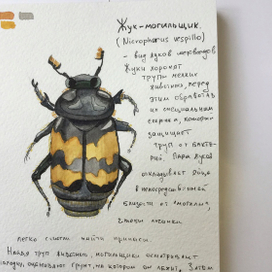 Жук-могильщик.
(Nicrophorus vespillo)
- вид жуков мертвоедов
Жуки хоронят
трупы мелких
животных, перед
этим обработав
их специальным
секретом, который
защищает
труп от бакте-
рий. Пара жуков
откладывает яйца
в непосредственной
близости от "могилы",
чтобы личинки
легко смогли найти прикорм.
Найдя труп животного, могильщики осматривают
находку, ощупывают грунт, на котором он лежит. Затем